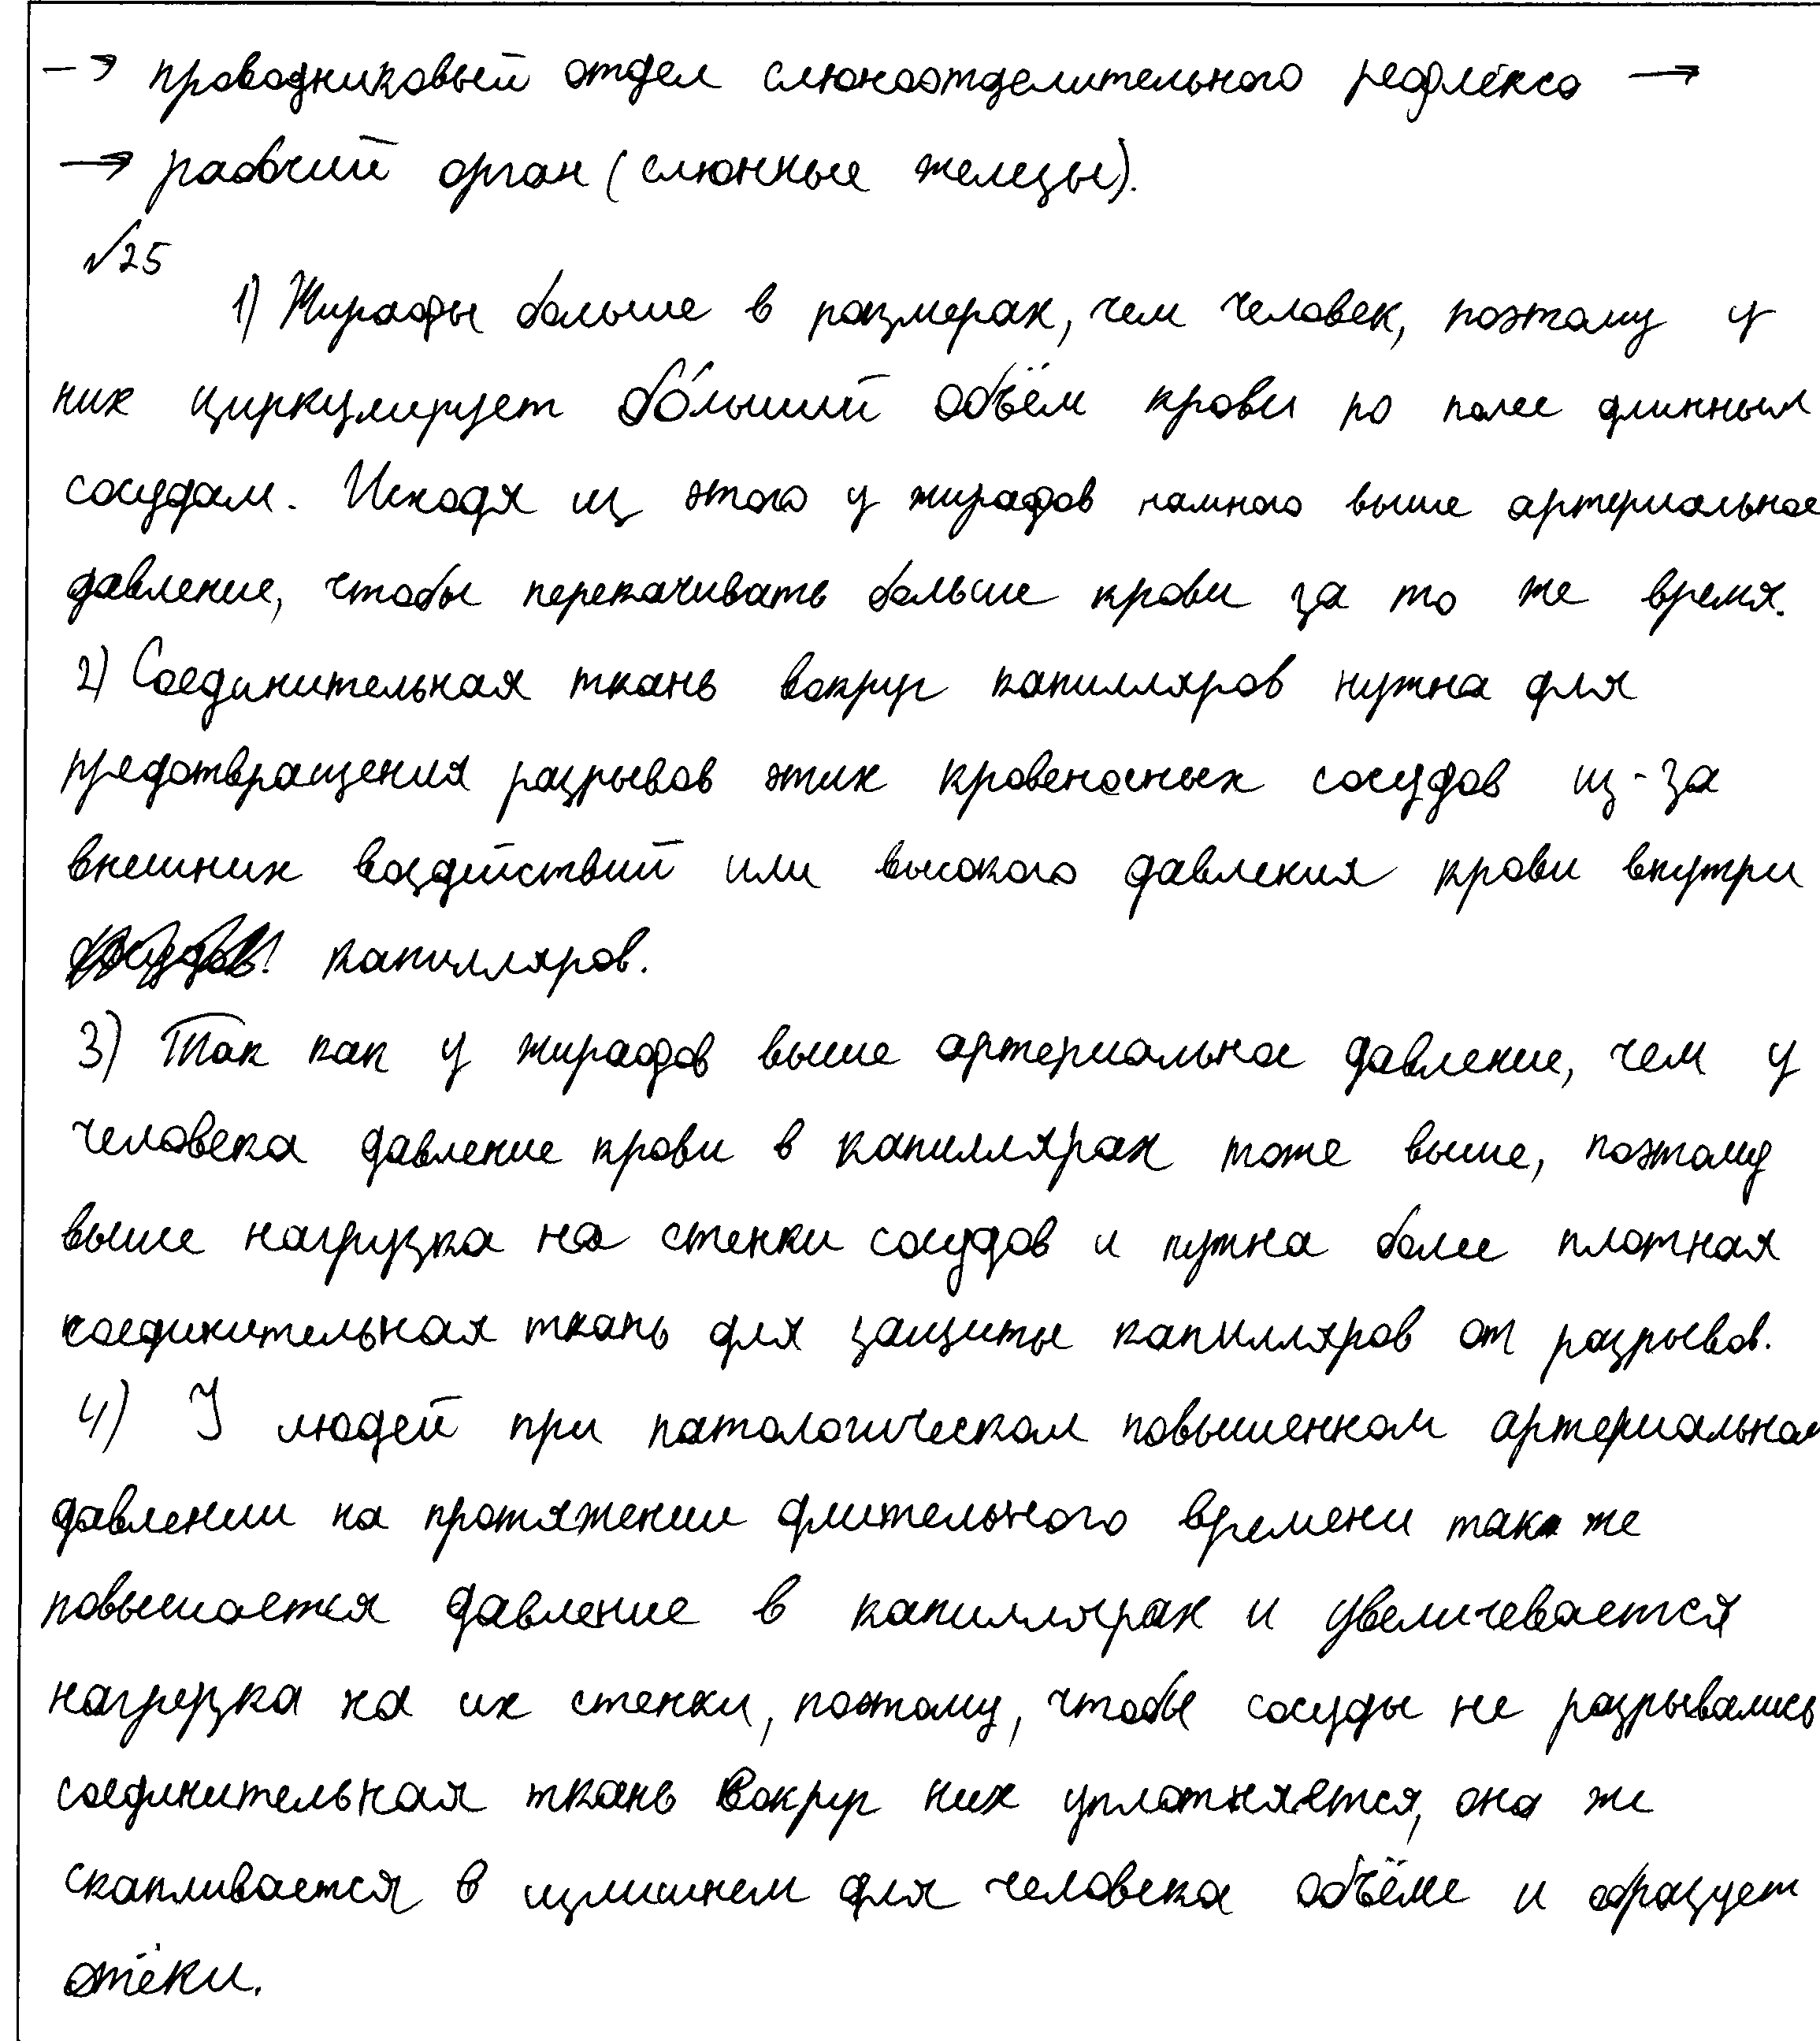 → проводниковый отдел слюноотделительного рефлекса →
→ рабочий орган (слюнные железы).
№25
1) Жирафы больше в размерах, чем человек, поэтому у
них циркулирует бо́льший объём крови по более длинным
сосудам. Исходя из этого у жирафов намного выше артериальное
давление, чтобы перекачивать больше крови за то же время.
2) Соединительная ткань вокруг капилляров нужна для
предотвращения разрывов этих кровеносных сосудов из-за
внешних воздействий или высокого давления крови внутри
капилляров.
3) Так как у жирафов выше артериальное давление, чем у
человека давление крови в капиллярах тоже выше, поэтому
выше нагрузка на стенки сосудов и нужна более плотная
соединительная ткань для защиты капилляров от разрывов.
4) У людей при патологическом повышенном артериальном
давлении на протяжении длительного времени так же
повышается давление в капиллярах и увеличевается
нагрузка на их стенки, поэтому, чтобы сосуды не разрывались
соединительная ткань вокруг них уплотняется, она же
скапливается в излишнем для человека объёме и образует
отёки.